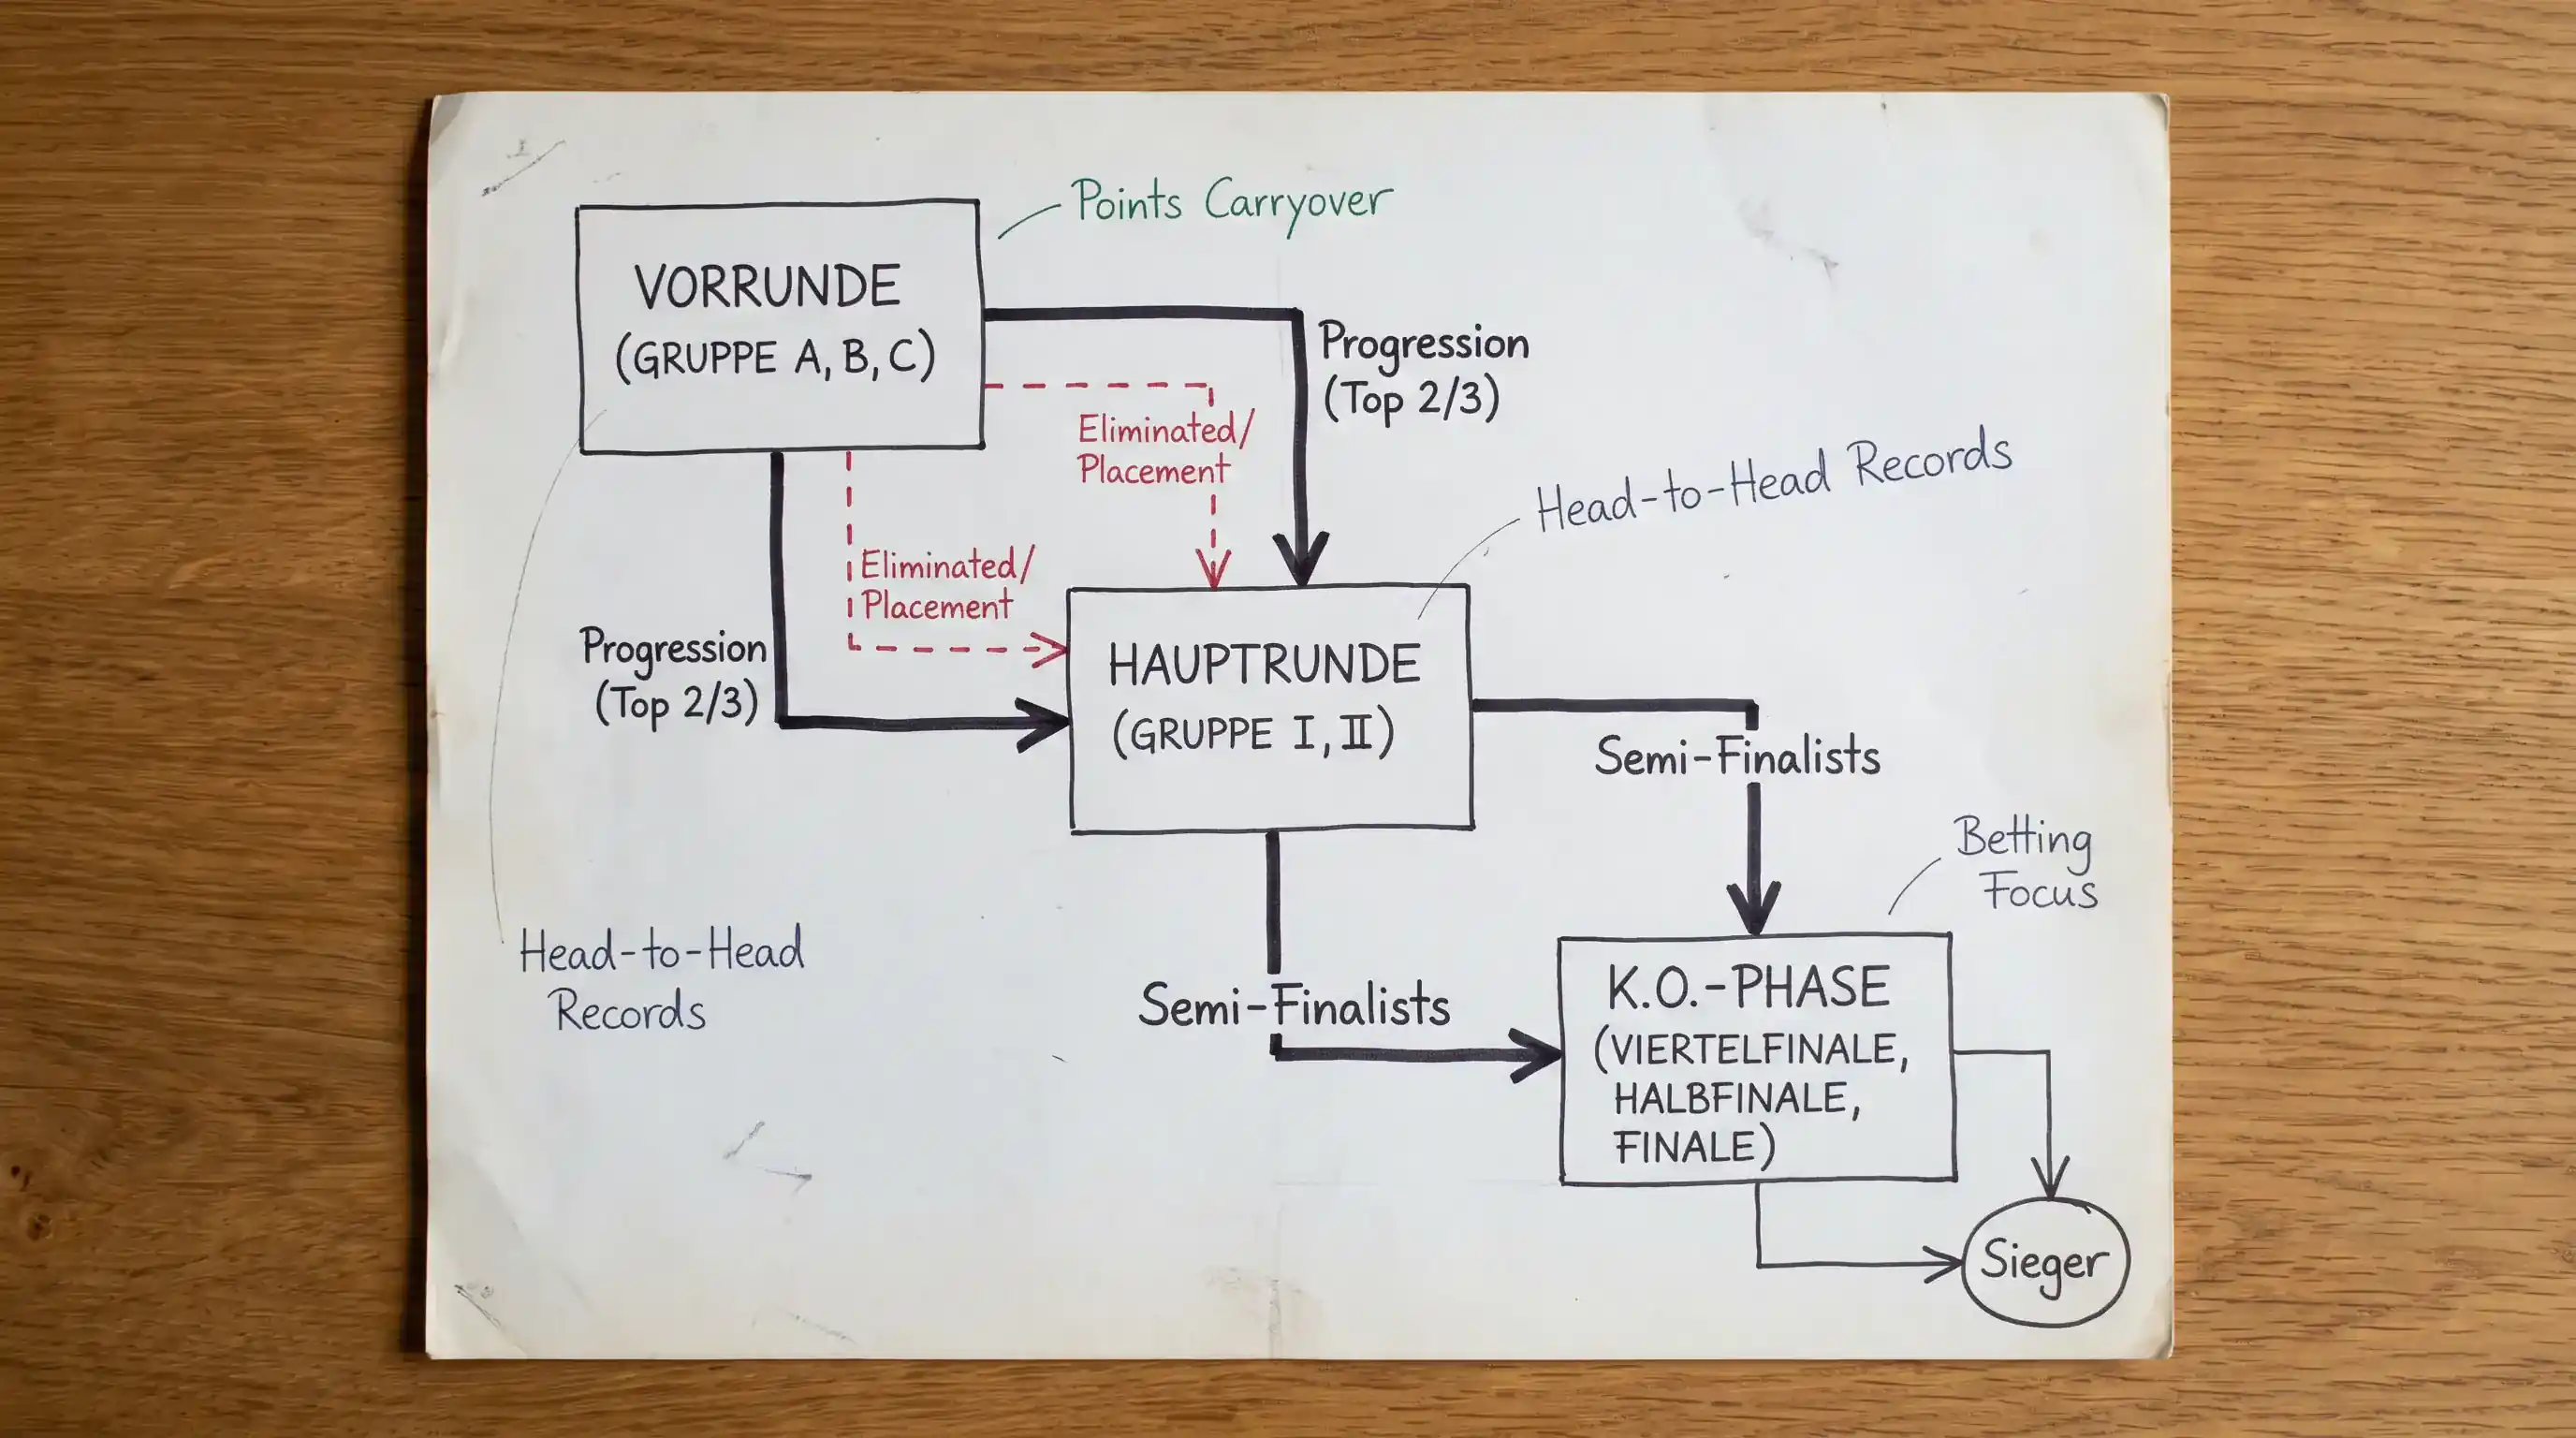 Points Carryover
VORRUNDE
(GRUPPE A, B, C)
Progression
(Top 2/3)
Eliminated/
Placement
Head-to-Head Records
Eliminated/
Placement
Progression
(Top 2/3)
HAUPTRUNDE
(GRUPPE I, II)
Semi-Finalists
Betting
Focus
Head-to-Head
Records
Semi-Finalists
K.O.-PHASE
(VIERTELFINALE,
HALBFINALE,
FINALE)
Sieger